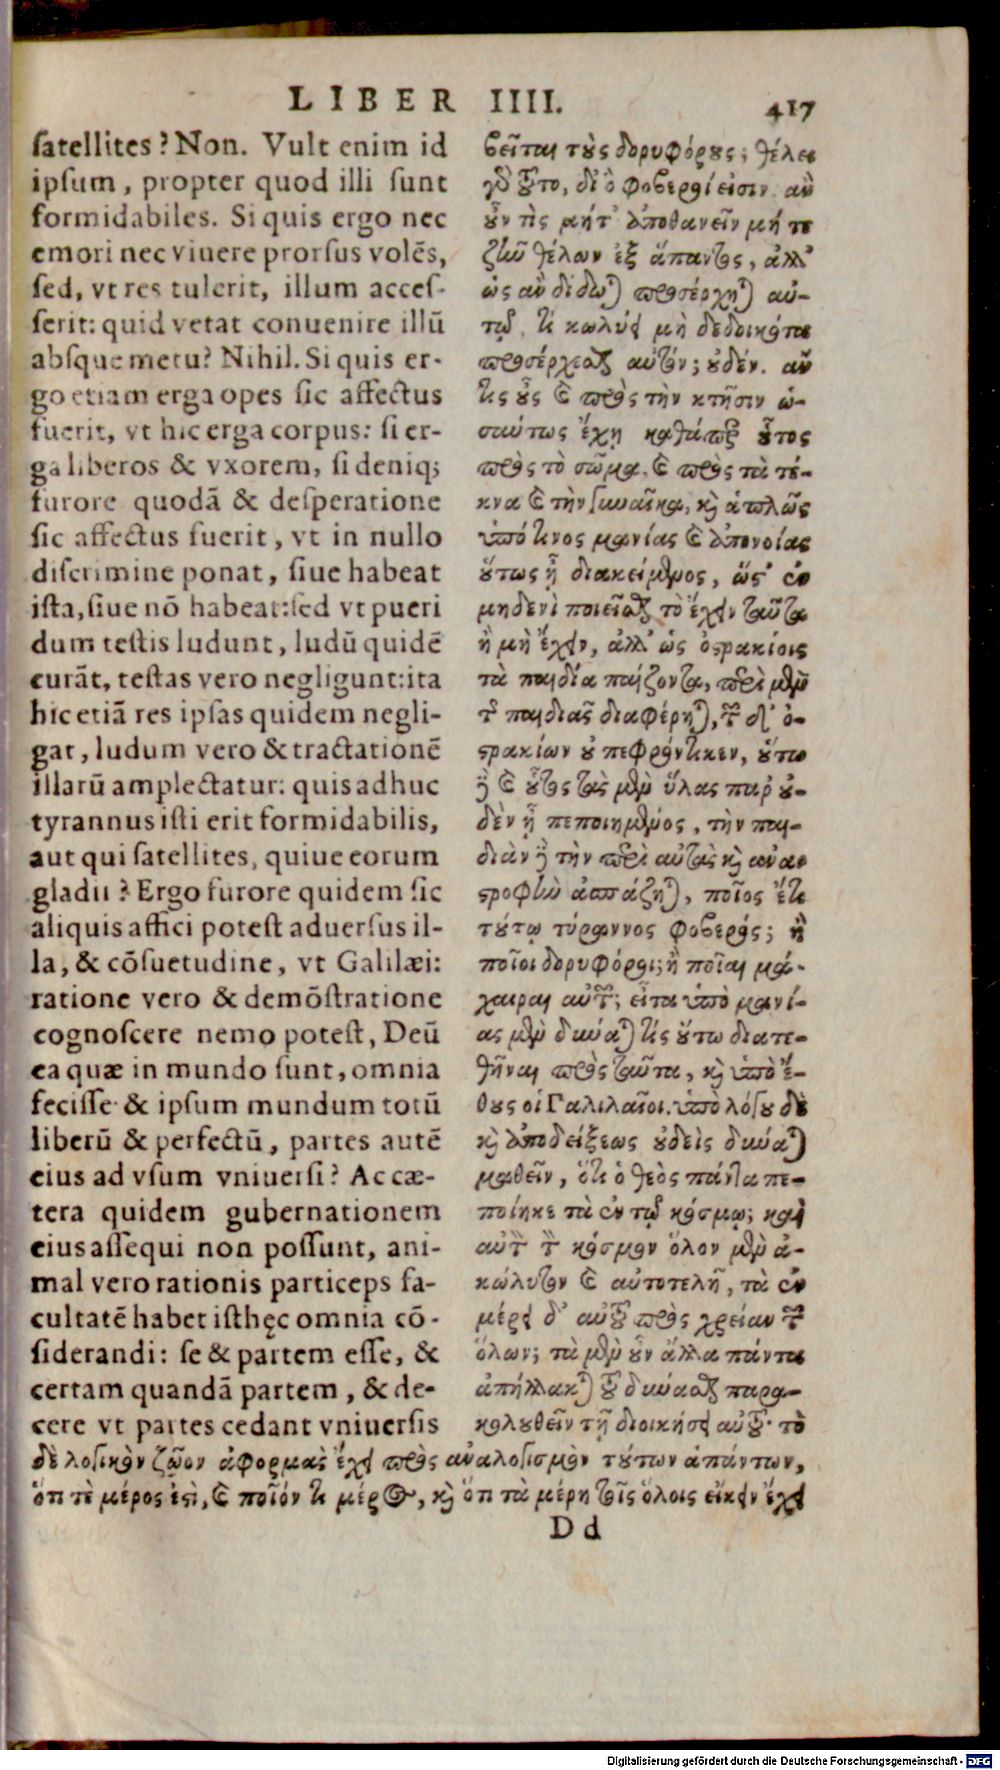 LIBER IIII. 417
satellites? Non. Vult enim id
ipsum, propter quod illi sunt
formidabiles. Si quis ergo nec
emori nec viuere prorsus volẽs,
sed, vt res tulerit, illum acces-
serit: quid vetat conuenire illũ
absque metu? Nihil. Si quis er-
go etiam erga opes sic affectus
fuerit, vt hic erga corpus: si er-
ga liberos & vxorem, si deniq;
furore quodã & desperatione
sic affectus fuerit, vt in nullo
discrimine ponat, siue habeat
ista, siue nõ habeat: sed vt pueri
dum testis ludunt, ludũ quidẽ
curãt, testas vero negligunt: ita
hic etiã res ipsas quidem negli-
gat, ludum vero & tractationẽ
illarũ amplectatur: quis adhuc
tyrannus isti erit formidabilis,
aut qui satellites, quiue eorum
gladii? Ergo furore quidem sic
aliquis affici potest aduersus il-
la, & cõsuetudine, vt Galilæi:
ratione vero & demõstratione
cognoscere nemo potest, Deũ
ea quæ in mundo sunt, omnia
fecisse & ipsum mundum totũ
liberũ & perfectũ, partes autẽ
eius ad vsum vniuersi? Ac cæ-
tera quidem gubernationem
eius assequi non possunt, ani-
mal vero rationis particeps fa-
cultatẽ habet isthęc omnia cõ-
siderandi: se & partem esse, &
certam quandã partem, & de-
cere vt partes cedant vniuersis
βεῖται τοὺς δορυφόρους; θέλει
γὸ τοῦτο, δι' ὃ φοβεροί εἰσιν. ἂν
οὖν τὶς μήτ' ἀποθανεῖν μή τε
ζῆν θέλων ἐξ ἅπαντος, ἀλλ'
ὡς ἂν διδῶται προσέρχηται αὐ-
τῷ, τί κωλύει μὴ δεδοικότα
προσέρχεσθαι αὐτόν; οὐδέν. ἂν
τις οὖς καὶ πρὸς τὴν κτῆσιν ὡ-
σαύτως ἔχῃ καθάπερ οὗτος
πρὸς τὸ σῶμα, καὶ πρὸς τὰ τέ-
κνα καὶ τὴν γυναῖκα, καὶ ἁπλῶς
ὑπό τινος μανίας καὶ ἀπονοίας
οὕτως ᾖ διακείμενος, ὥς' ἐν
μηδενὶ ποιεῖσθαι τὸ ἔχειν ταῦτα
ἢ μὴ ἔχειν, ἀλλ' ὡς ὀστρακίοις
τὰ παιδία παίζοντα, περὶ μὲν
τῆς παιδιᾶς διαφέρηται, τῶν δ' ὀ-
στρακίων οὐ πεφρόντικεν, οὕτω
δὲ καὶ οὗτος τὰς μὲν ὕλας παρ' οὐ-
δὲν ᾖ πεποιημένος, τὴν παι-
διὰν δὲ τὴν περὶ αὐτὰς καὶ ἀνα-
στροφὴν ἀσπάζηται, ποῖος ἔτι
τούτῳ τύραννος φοβερός; ἢ
ποῖοι δορυφόροι; ἢ ποῖαι μά-
χαιραι αὐτῶν; εἶτα ὑπὸ μανί-
ας μὲν δύναταί τις οὕτω διατε-
θῆναι πρὸς ταῦτα, καὶ ὑπὸ ἔ-
θους οἱ Γαλιλαῖοι. ὑπὸ λόγου δὲ
καὶ ἀποδείξεως οὐδεὶς δύναται
μαθεῖν, ὅτι ὁ θεὸς πάντα πε-
ποίηκε τὰ ἐν τῷ κόσμῳ; καὶ
αὐτὸν τὸν κόσμον ὅλον μὲν ἀ-
κώλυτον καὶ αὐτοτελῆ, τὰ ἐν
μέρει δ' αὐτοῦ πρὸς χρείαν τῶν
ὅλων; τὰ μὲν οὖν ἄλλα πάντα
ἀπήλλακται τοῦ δύνασθαι παρα-
κολουθεῖν τῇ διοικήσει αὐτοῦ· τὸ
δὲ λογικὸν ζῶον ἀφορμὰς ἔχει πρὸς ἀναλογισμὸν τούτων ἁπάντων,
ὅτι τὲ μέρος ἐστὶ, καὶ ποῖόν τι μέρος, καὶ ὅτι τὰ μέρη τοῖς ὅλοις εἴκειν ἔχει
D d
Digitalisierung gefördert durch die Deutsche Forschungsgemeinschaft - DFG